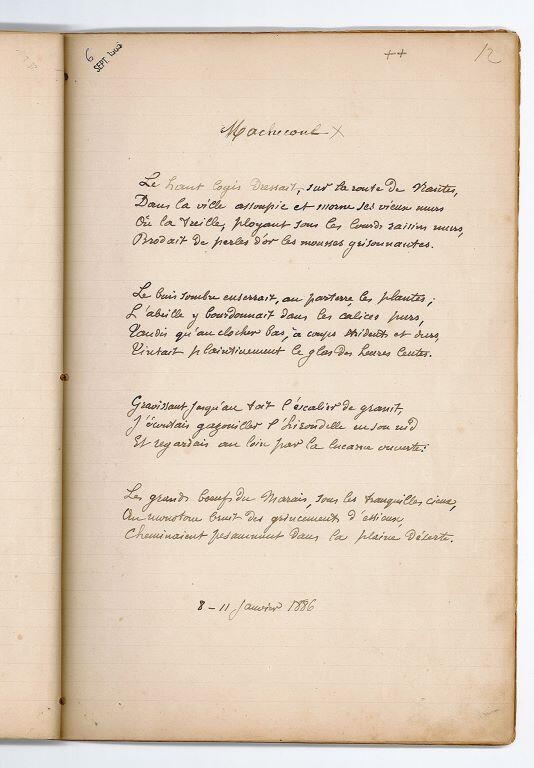 6
SEPT.
++
12
Machecoul X
Le haut logis dressait, sur la route de Nantes,
Dans la ville assoupie et morne ses vieux murs
Où la treille, ployant sous les lourds raisins murs,
Brodait de perles d'or les mousses grisonnantes.
Le buis sombre enserrait, au parterre, les plantes;
L'abeille y bourdonnait dans les calices purs,
Tandis qu'au clocher bas, à coups stridents et durs,
Tintait plaintivement le glas des heures lentes.
Gravissant jusqu'au toit l'escalier de granit,
J'écoutais gazouiller l'hirondelle en son nid
Et regardais au loin par la lucarne ouverte:
Les grands bœufs du Marais, sous les tranquilles cieux,
Au monotone bruit des grincements d'essieux,
Cheminaient pesamment dans la plaine déserte.
8 - 11 Janvier 1886